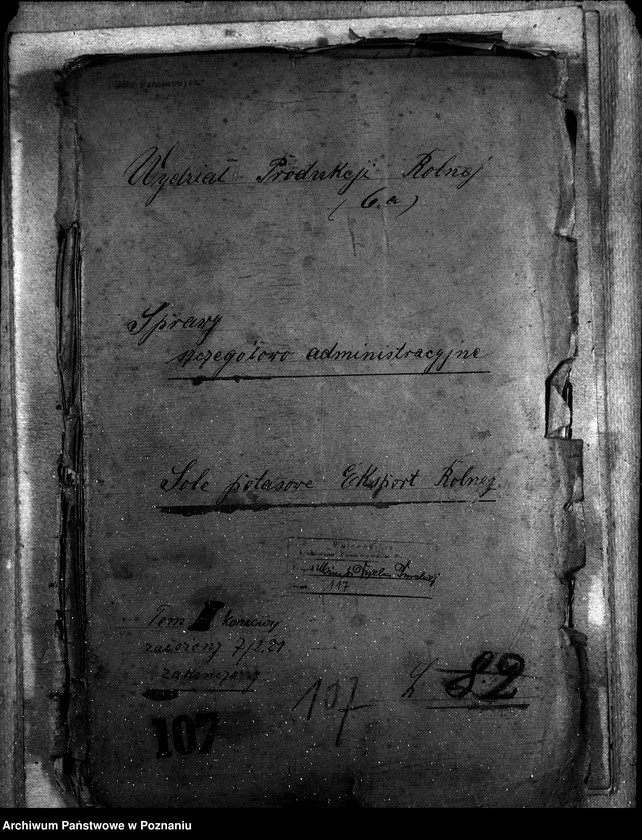 Wydział Produkcji Rolnej
(6.a)
Sprawy
szczegółowo administracyjne
Sole potasowe Eksport Rolnej
117
Tom I końcowy
założony 7/2.21
zakończony
107
107
82
Archiwum Państwowe w Poznaniu